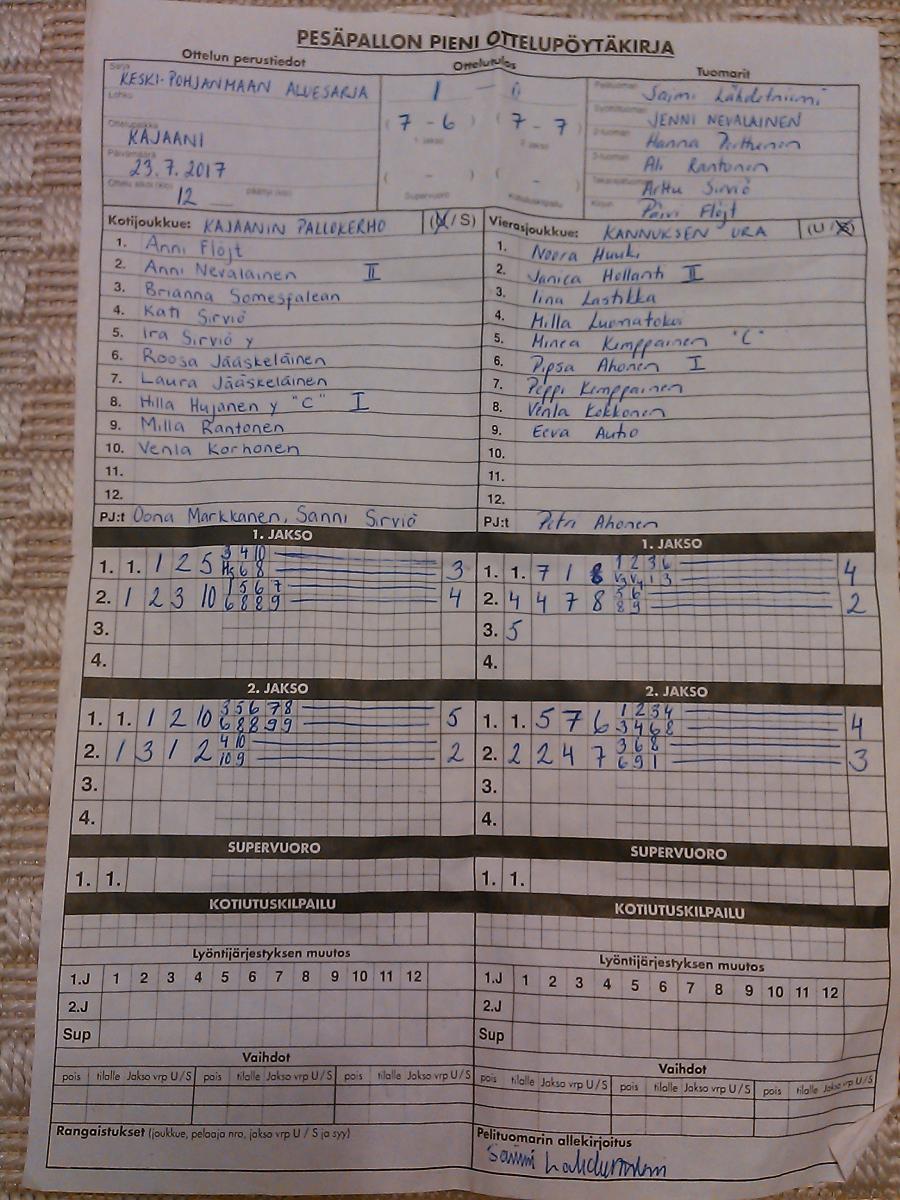 PESÄPALLON PIENI OTTELUPÖYTÄKIRJA
Ottelun perustiedot
Ottelutulos
Tuomarit
Sarja
KESKI-POHJANMAAN ALUESARJA
Lohko
Ottelupaikka
KAJAANI
Päivämäärä
23.7.2017
12
1 - 0
(7 - 6) (7 - 7)
1. jakso 2. jakso
( - ) ( - )
Supervuoro Kotiutuskilpailu
JENNI NEVALAINEN
Hanna
Ali Rantonen
Arttu Sirviö
Päivi Flöjt
Kotijoukkue: KAJAANIN PALLOKERHO (U / S)
1. Anni Flöjt
2. Anni Nevalainen II
3. Brianna Somesfalean
4. Kati Sirviö
5. Ira Sirviö y
6. Roosa Jääskeläinen
7. Laura Jääskeläinen
8. Hilla Hujanen y "C" I
9. Milla Rantonen
10. Venla Korhonen
11.
12.
PJ:t Oona Markkanen, Sanni Sirviö
Vierasjoukkue: KANNUKSEN URA (U / S)
1. Noora Huuki
2. Janica Hollanti II
3. Iina Lastikka
4. Milla Luomatokoi
5. Minea Kemppainen "C"
6. Pipsa Ahonen I
7. Peppi Kemppainen
8. Venla Kokkonen
9. Eeva Autio
10.
11.
12.
PJ:t Petri Ahonen
1. JAKSO
1. 1. 1 2 5 3 4 10 3
6 8
2. 1 2 3 10 1 5 6 7 4
6 8 8 9
3.
4.
1. JAKSO
1. 1. 7 1 8 1 2 3 6 4
1 3
2. 4 4 7 8 5 6 2
8 9
3. 5
4.
2. JAKSO
1. 1. 1 2 10 3 5 6 7 8 5
6 8 8 9 9
2. 1 3 1 2 4 10 2
10 9
3.
4.
2. JAKSO
1. 1. 5 7 6 1 2 3 4 4
3 4 6 8
2. 2 2 4 7 3 6 8 3
6 9 1
3.
4.
SUPERVUORO
1. 1.
SUPERVUORO
1. 1.
KOTIUTUSKILPAILU
KOTIUTUSKILPAILU
Lyöntijärjestyksen muutos
1.J 1 2 3 4 5 6 7 8 9 10 11 12
2.J
Sup
Lyöntijärjestyksen muutos
1.J 1 2 3 4 5 6 7 8 9 10 11 12
2.J
Sup
Vaihdot
pois tilalle Jakso vrp U / S pois tilalle Jakso vrp U / S pois tilalle Jakso vrp U / S
Vaihdot
pois tilalle Jakso vrp U / S pois tilalle Jakso vrp U / S pois tilalle Jakso vrp U / S
Rangaistukset (joukkue, pelaaja nro, jakso vrp U / S ja syy)
Pelituomarin allekirjoitus